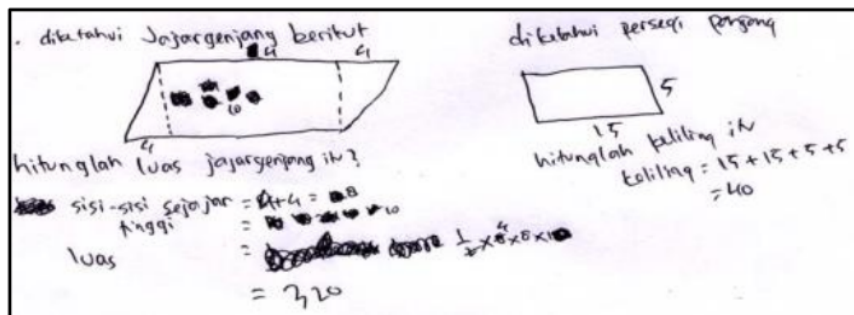 . diketahui Jajargenjang berikut
4
4
10
4
hitunglah luas jajargenjang itu?
sisi-sisi sejajar = 4+4 = 8
tinggi = 10
luas = 1/2 × 8 × 8 × 10
4
= 320
diketahui persegi panjang
5
15
hitunglah keliling itu
keliling = 15 + 15 + 5 + 5
= 40